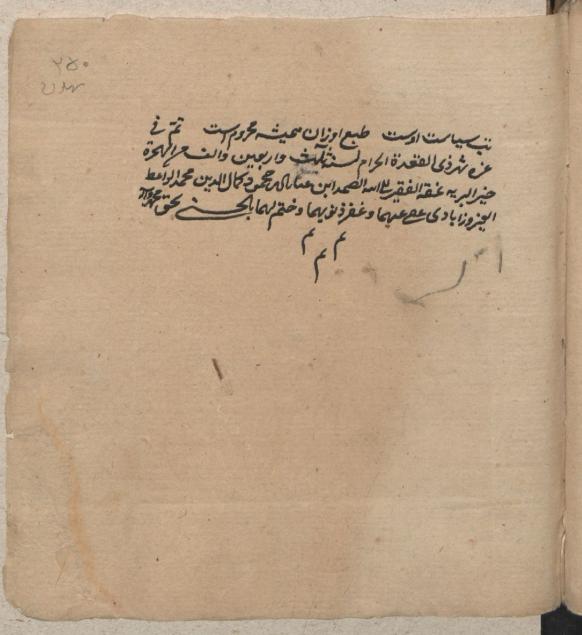 ۲۵۰
تب سیاست اوست طبع اوزان همیشه محروم است تم فی
غره شهر ذی القعدة الحرام لسنة ثلث واربعین والف من الهجرة
خیر البریه نمقه الفقیر الی الله الصمد ابن محمود کمال الدین محمد الواعظ
الفیروزابادی عفی عنهما و غفر ذنوبهما و ختم لهما بالحسنی بحق محمد وآله
م م م